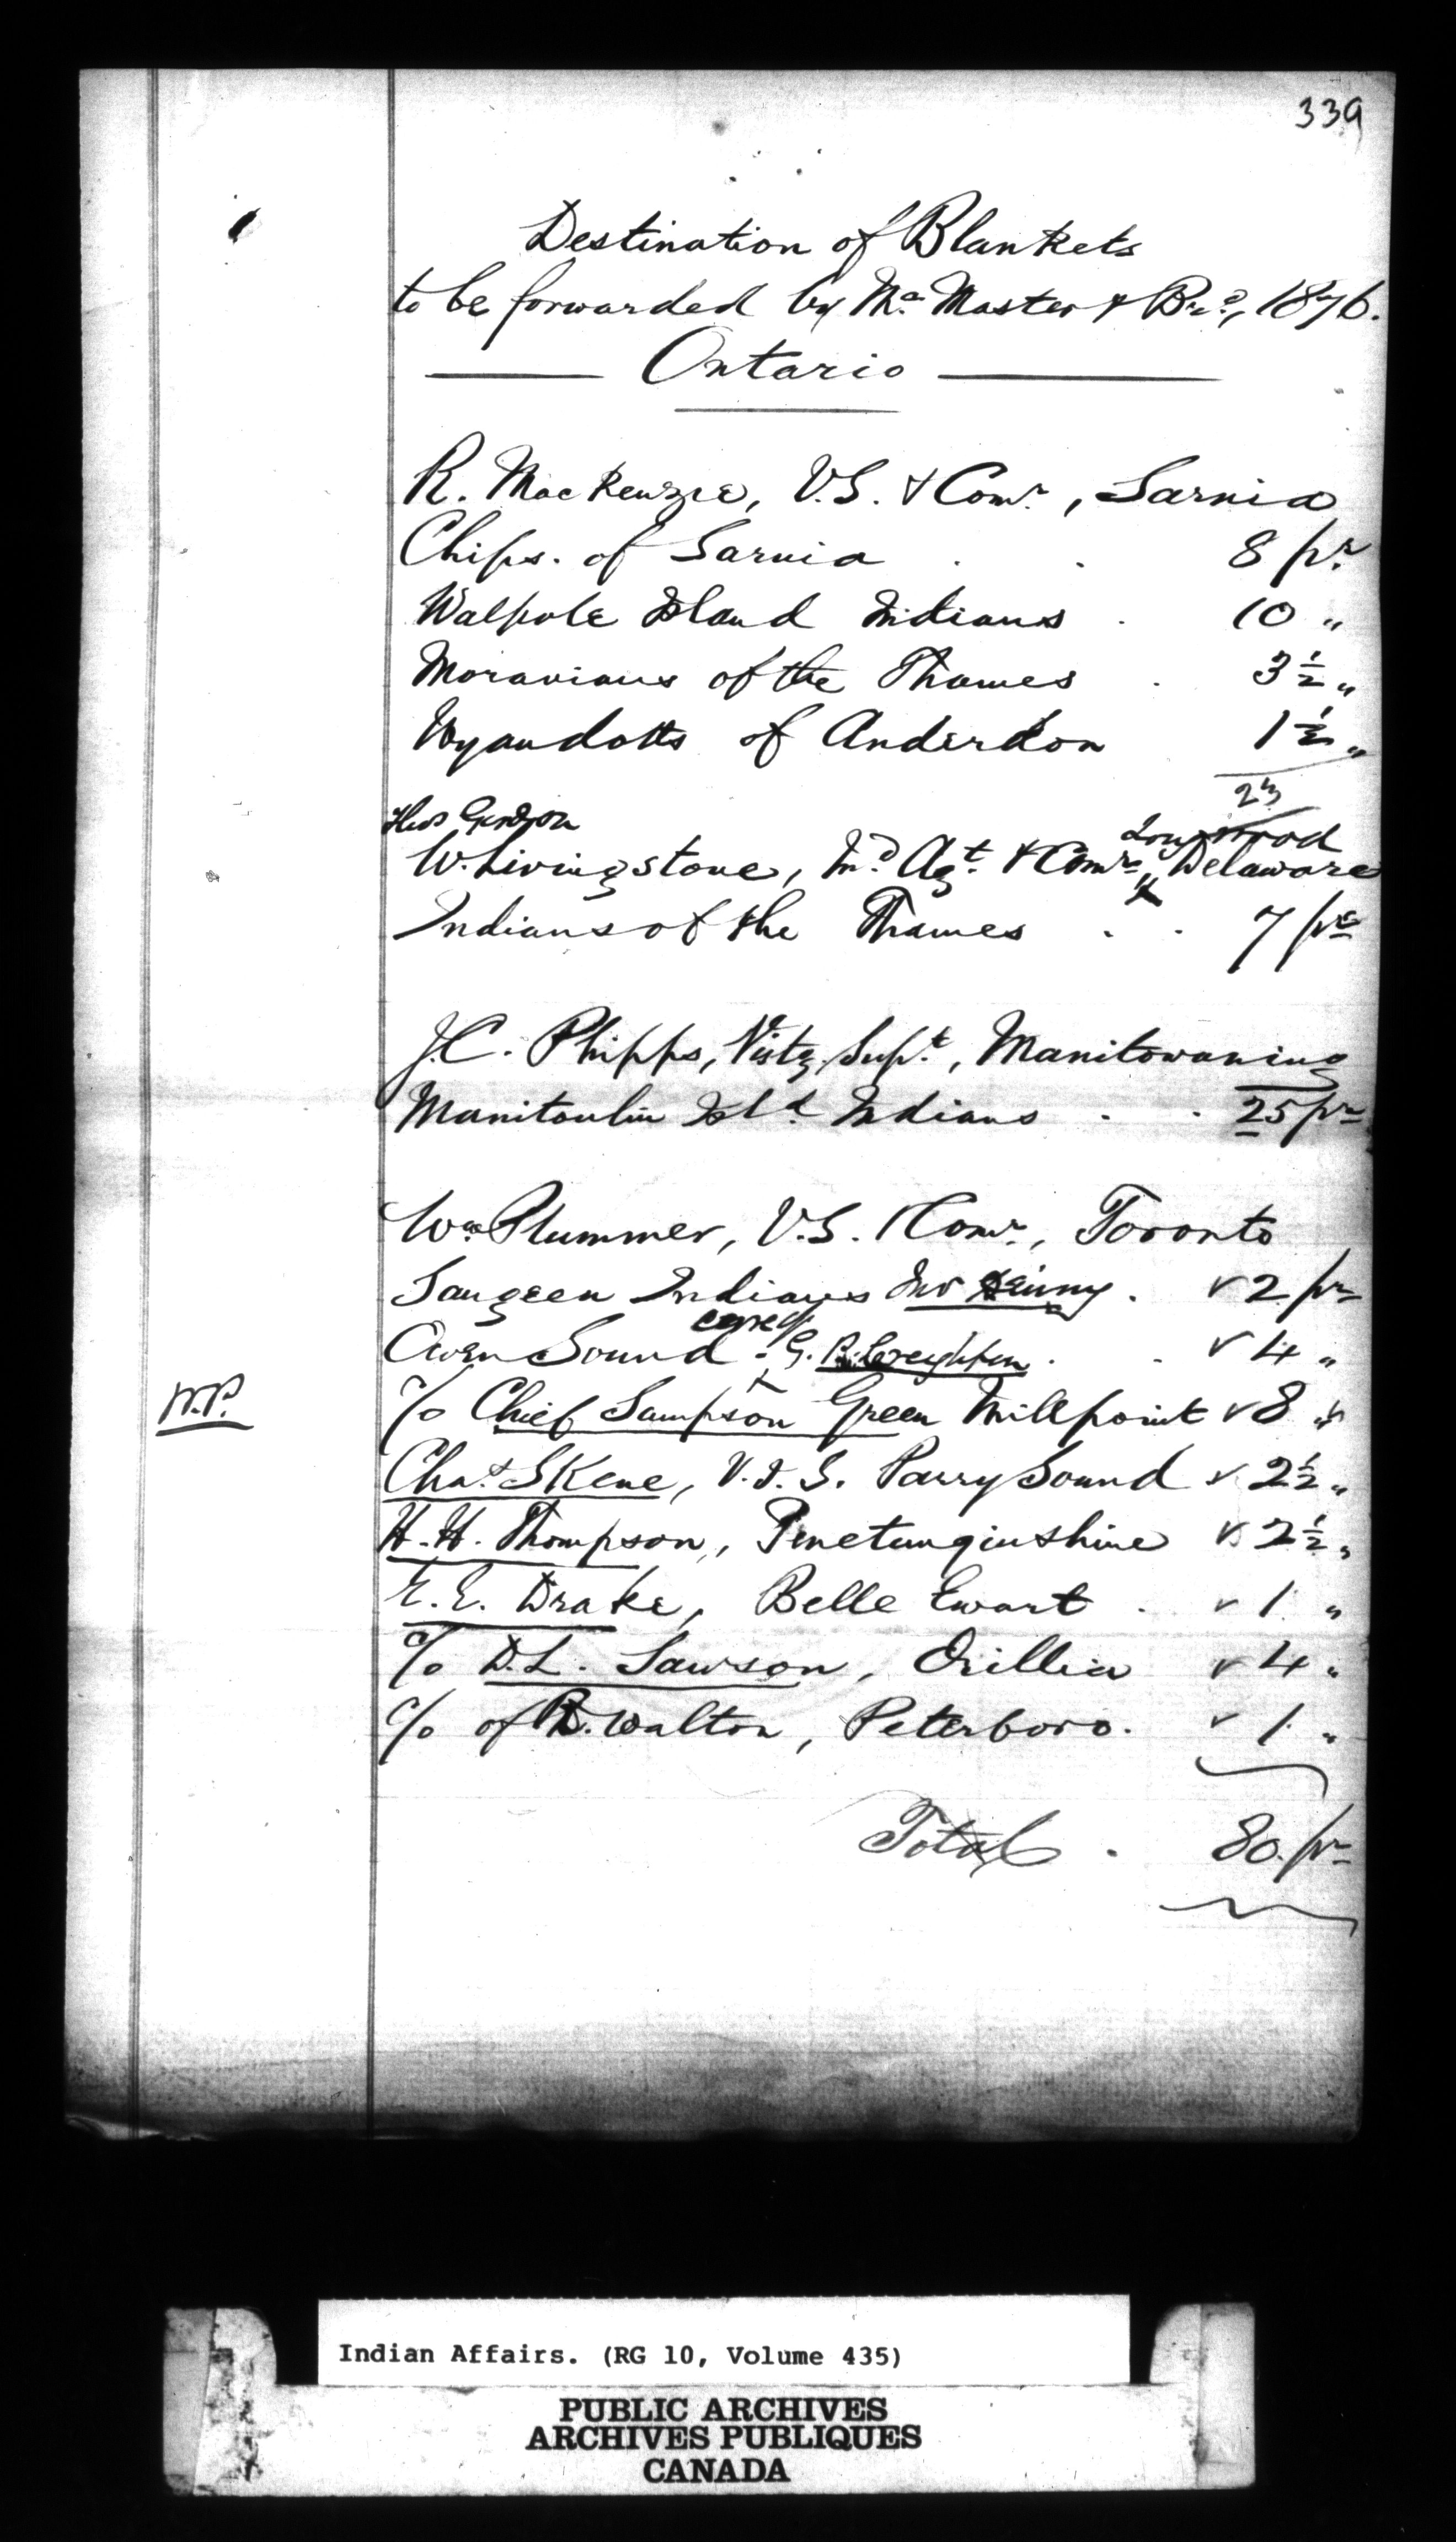 339
Destination of Blankets
to be forwarded by Mc Master & Bro, 1876.
Ontario
R. MacKenzie, V.S. & Comr., Sarnia
Chips. of Sarnia . . 8 pr.
Walpole Island Indians . 10 "
Moravians of the Thames . 3 1/2 "
Wyandotts of Anderdon 1 1/2 "
23
Thos Gordon
Longwood
W. Livingstone, Ind Agt. & Comr, Delaware
Indians of the Thames . . 7 prs
J.C. Phipps, Vistg. Supt, Manitowaning
Manitoulin Isld. Indians . . 25 pr
Wm Plummer, V.S. & Comr., Toronto
Saugeen Indians Jno . v 2 pr
care of
Owen Sound - G. R. Creighton . . v 4 "
W.P.
c/o Chief Sampson Green Millpoint v 8 "
Chas. Skene, V.I.S. Parry Sound v 2 1/2 "
H.H. Thompson, Penetanguishine v 2 1/2 "
E.E. Drake, Belle Ewart . v 1 "
c/o D.L. Sawson, Orillia v 4 "
c/o of R. Walton, Peterboro. v 1 "
Total . 80 pr
Indian Affairs. (RG 10, Volume 435)
PUBLIC ARCHIVES
ARCHIVES PUBLIQUES
CANADA